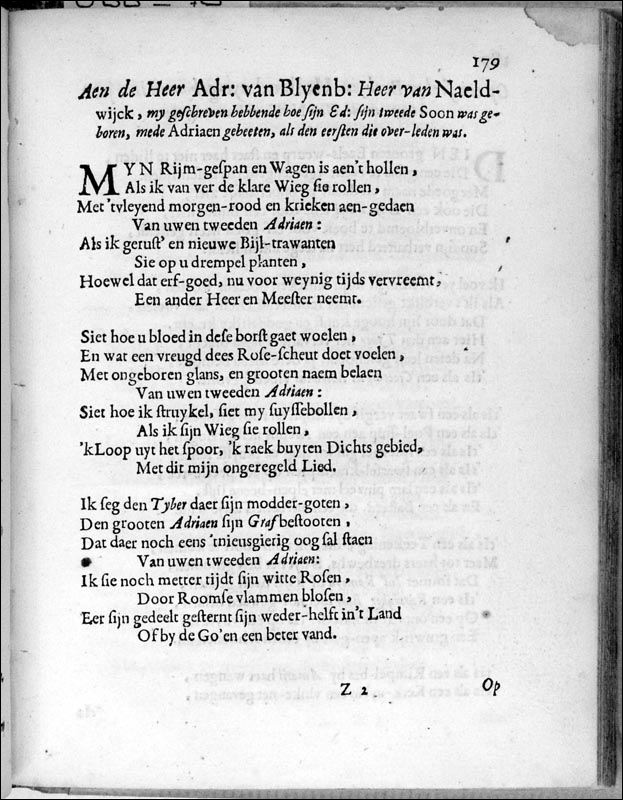 179
Aen de Heer Adr: van Blyenb: Heer van Naeld-
wijck, my geschreven hebbende hoe sijn Ed: sijn tweede Soon was ge-
boren, mede Adriaen geheeten, als den eersten die over-leden was.
MYN Rijm-gespan en Wagen is aen't hollen,
Als ik van ver de klare Wieg sie rollen,
Met 'tvleyend morgen-rood en krieken aen-gedaen
Van uwen tweeden Adriaen:
Als ik gerust' en nieuwe Bijl-trawanten
Sie op u drempel planten,
Hoewel dat erf-goed, nu voor weynig tijds vervreemt,
Een ander Heer en Meester neemt.
Siet hoe u bloed in dese borst gaet woelen,
En wat een vreugd dees Rose-scheut doet voelen,
Met ongeboren glans, en grooten naem belaen
Van uwen tweeden Adriaen:
Siet hoe ik struykel, siet my suyssebollen,
Als ik sijn Wieg sie rollen,
'kLoop uyt het spoor, 'k raek buyten Dichts gebied,
Met dit mijn ongeregeld Lied.
Ik seg den Tyber daer sijn modder-goten,
Den grooten Adriaen sijn Graf bestooten,
Dat daer noch eens 'tnieusgierig oog sal staen
Van uwen tweeden Adriaen:
Ik sie noch metter tijdt sijn witte Rosen,
Door Roomse vlammen blosen,
Eer sijn gedeelt gesternt sijn weder-helft in't Land
Of by de Go'en een beter vand.
Z 2
Op